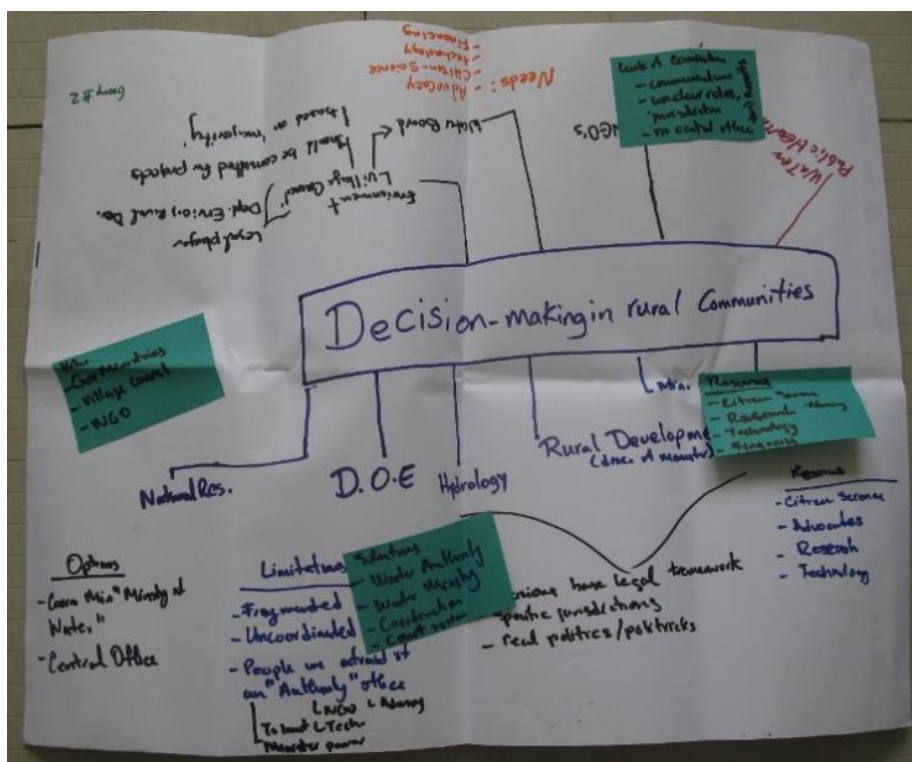 Group #2
Needs: - Advocacy
- Citizen-Science
- technology
- Financing
Lack of
- communication
- unclear roles,
jurisdiction
- no central office
NGO's
Water
Public Health
Water Board
Environment
Village Council
Legal player
Dept. Environ, Rural Dev.
shall be consulted for projects
based on 'majority'
Decision-making in rural Communities
- Gov Ministries
- Village council
- NGO
Natural Res.
D.O.E
Hydrology
Rural Developme
Min.
Resources
- Citizen Science
- Research
- Technology
- Financing
Resources
- Citizen Science
- Advocates
- Research
- Technology
Options
Min "Ministry of
Water"
- Central Office
Limitations
- Fragmented
- Uncoordinated
- People are afraid of
an "Authority" office
NGO
Tech
Minister power
Solutions
- Water Authority
- Water Ministry
- Coordination
- Court system
have legal framework
jurisdictions
- real politics/politricks